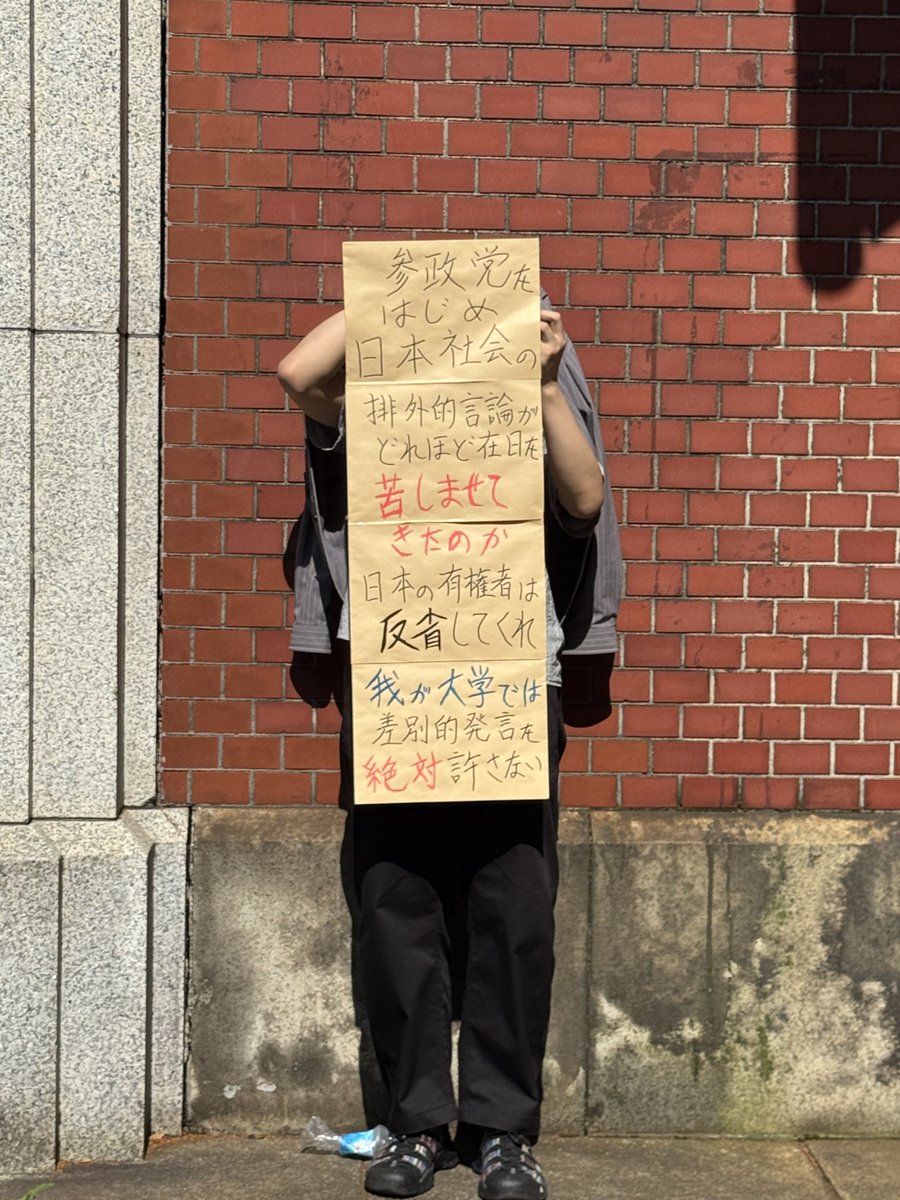 参政党を
はじめ
日本社会の
排外的言論が
どれほど在日を
苦しませて
きたのか
日本の有権者は
反省してくれ
我が大学では
差別的発言を
絶対許さない